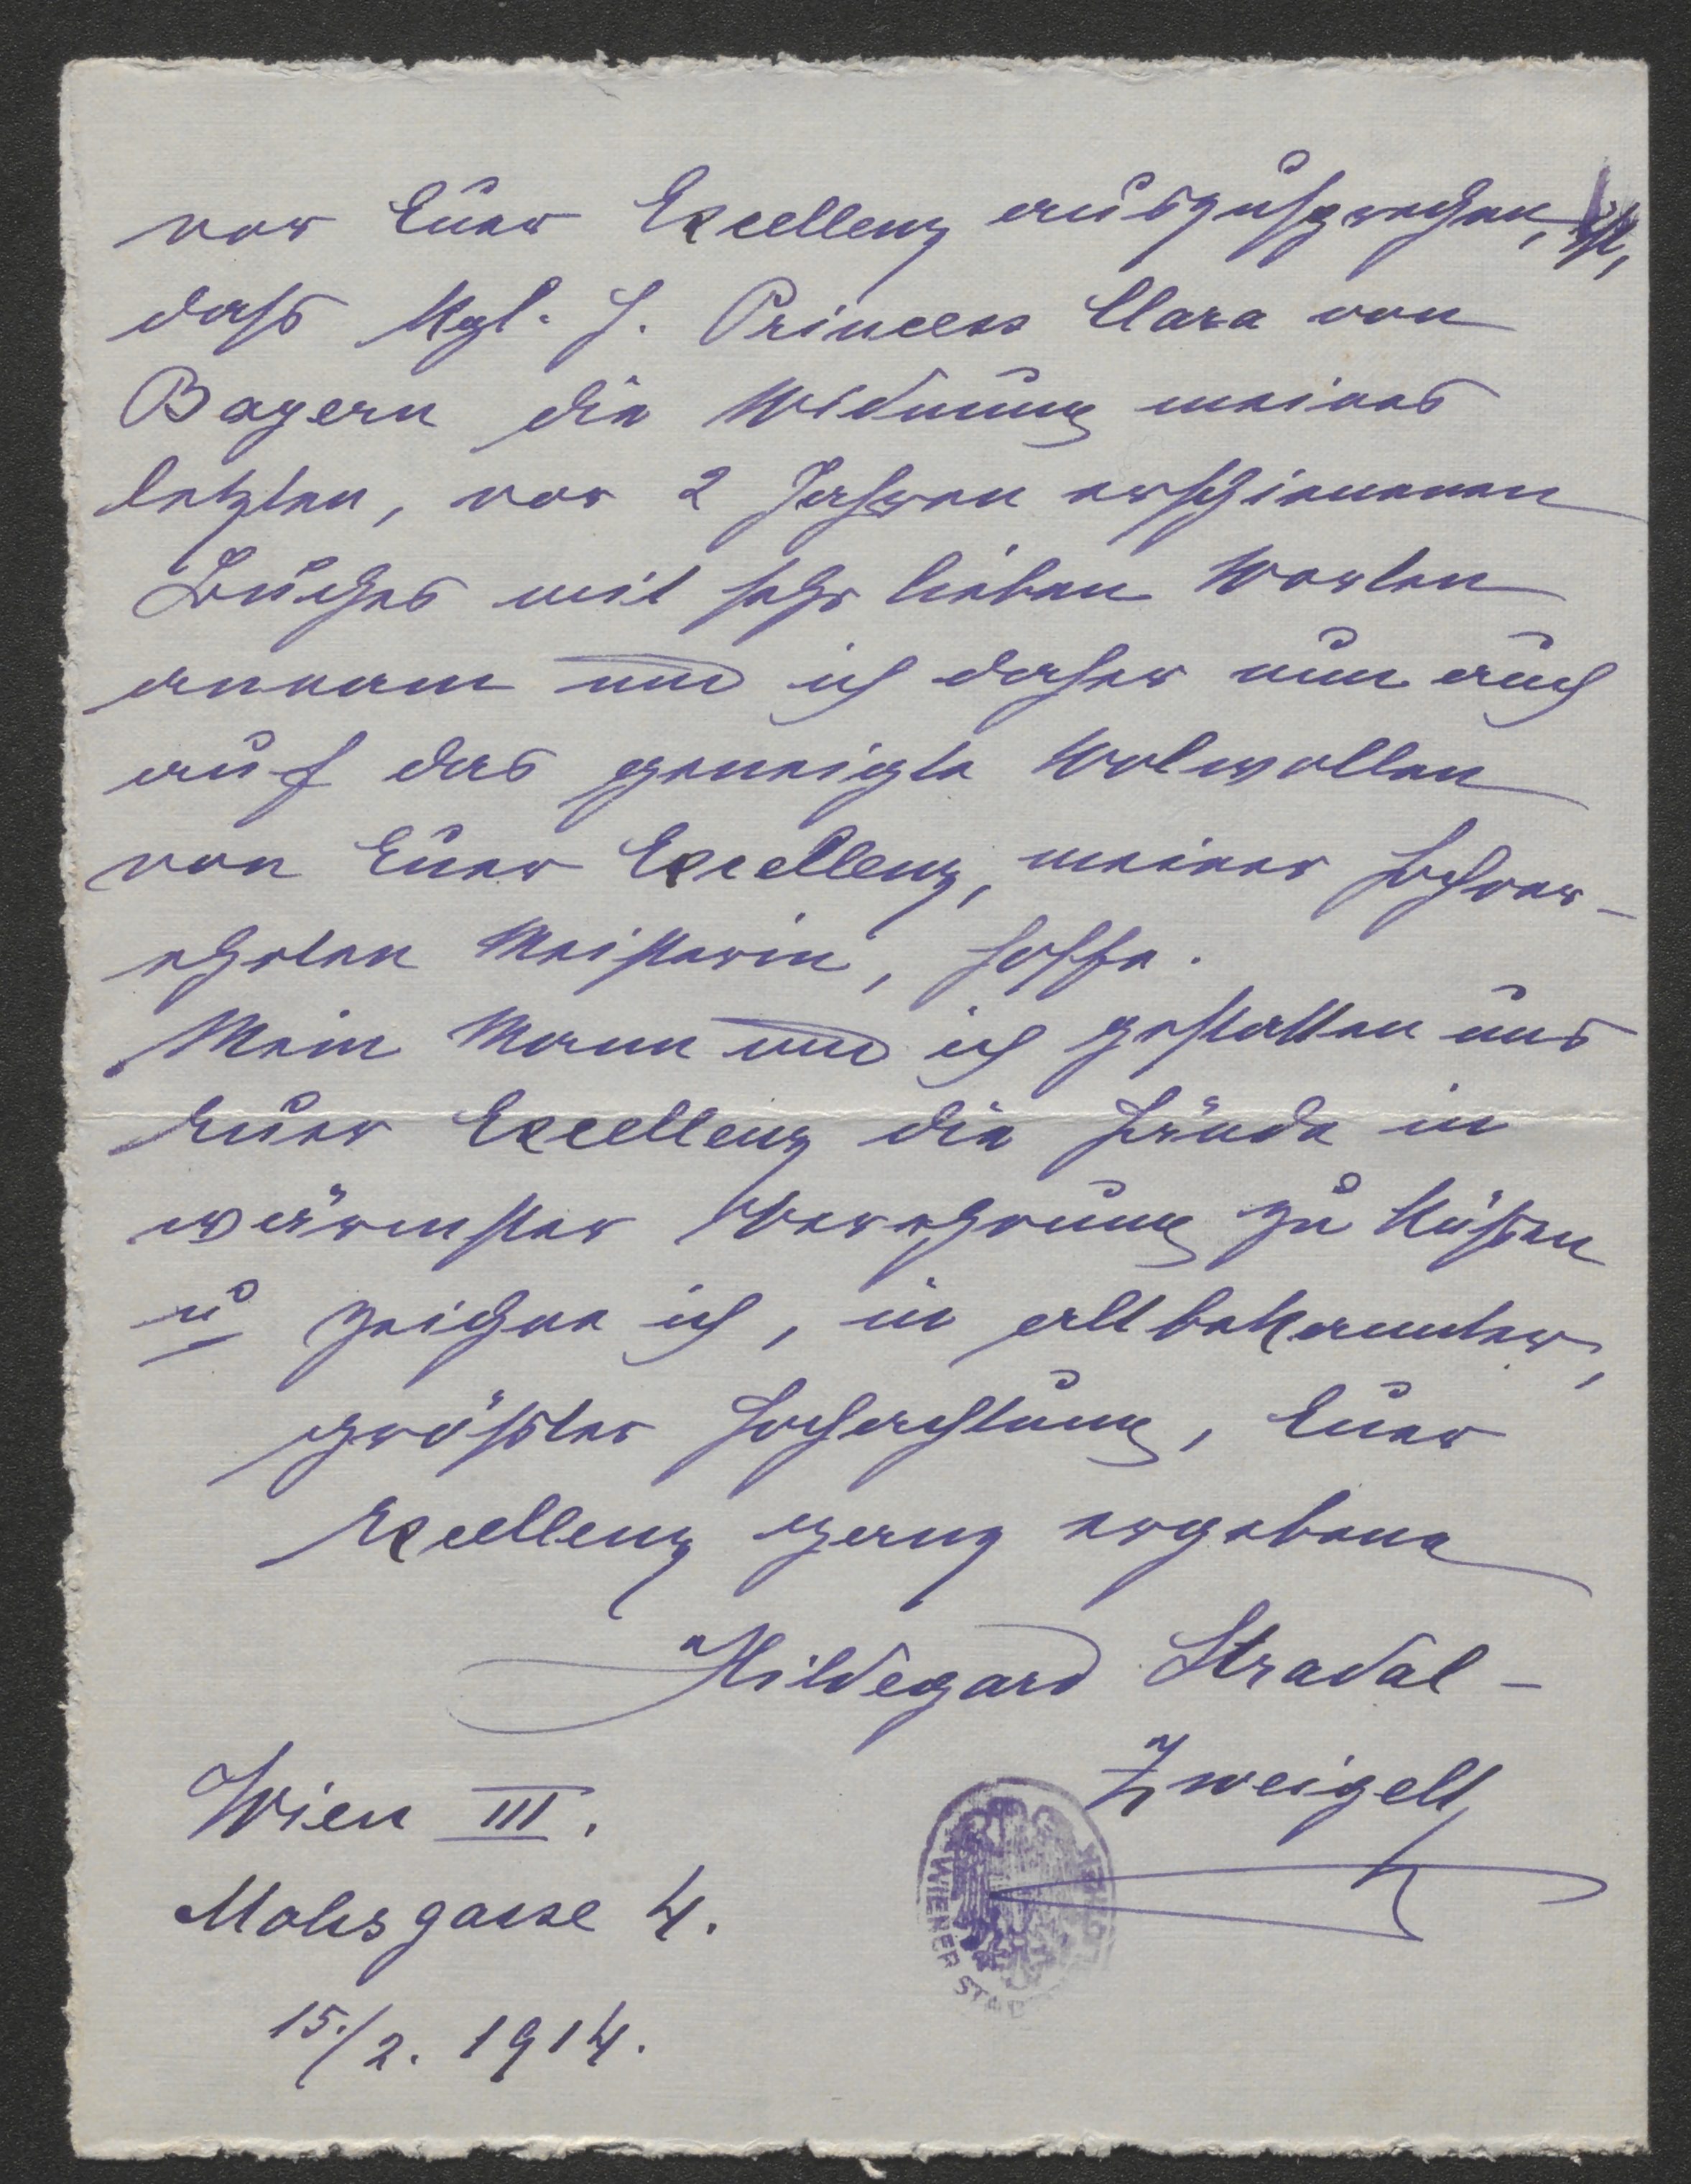 vor Euer Excellenz auszusprechen, ist,
dass Kgl. H. Princess Clara von
Bayern die Widmung meines
letzten, vor 2 Jahren erschienenen
Buches mit sehr lieben Worten
annam und ich daher nun auch
auf das geneigte Wolwollen
von Euer Excellenz, meiner hochver-
ehrten Meisterin, hoffe.
Mein Mann und ich gestatten uns
Euer Excellenz die Hände in
wärmster Verehrung zu küssen
u zeichne ich, in altbekannter,
grösster Hochachtung, Euer
Excellenz ganz ergebene
Hildegard Stradal-
Zweigelt
Wien III.
Mohsgasse 4.
15./2. 1914.
WIENER STAD